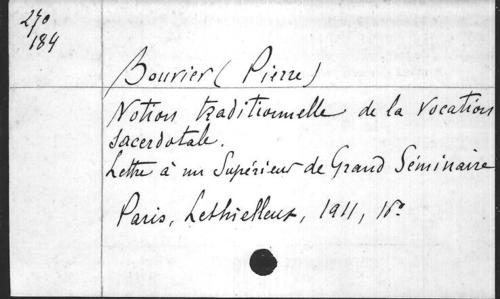 270
184
Bouvier (Pierre)
Notion traditionnelle de la vocation
sacerdotale.
Lettre à un Supérieur de Grand Séminaire
Paris, Lethielleux, 1911, 16º